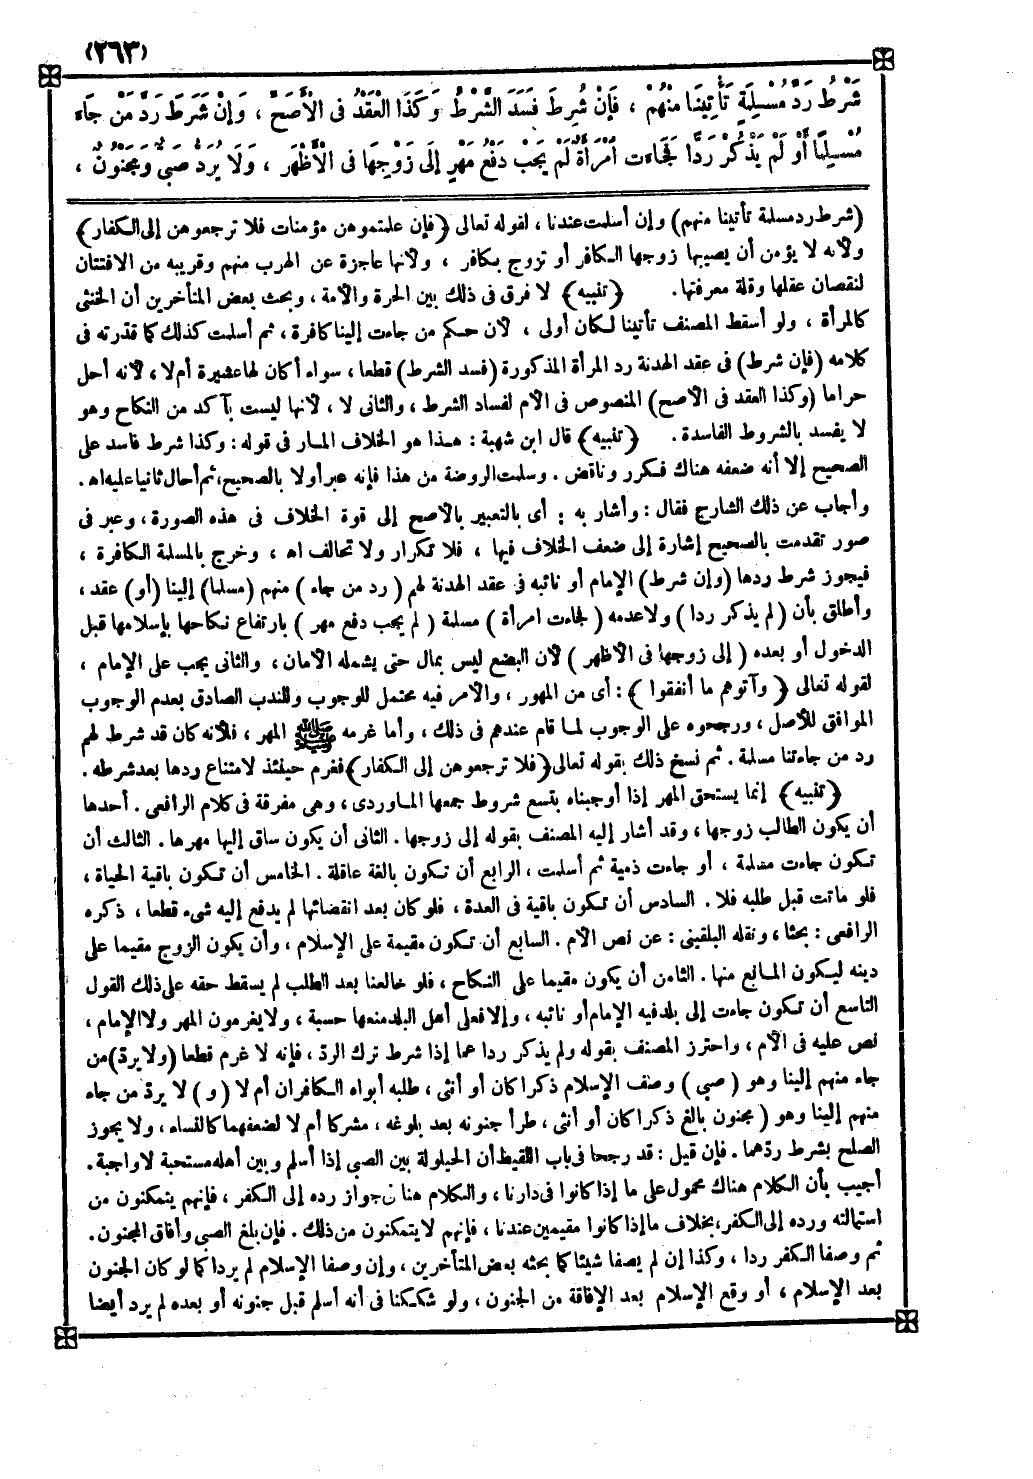 (٢٦٣)
شَرْطُ رَدِّ مُسْلِمَةٍ تَأْتِينَا مِنْهُمْ ، فَإِنْ شُرِطَ فَسَدَ الشَّرْطُ وَكَذَا الْعَقْدُ فِى الْأَصَحِّ ، وَإِنْ شَرَطَ رَدَّ مَنْ جَاءَ
مُسْلِمًا أَوْ لَمْ يَذْكُرْ رَدًّا فَجَاءَتِ امْرَأَةٌ لَمْ يَجِبْ دَفْعُ مَهْرٍ إِلَى زَوْجِهَا فِى الْأَظْهَرِ ، وَلَا يُرَدُّ صَبِىٌّ وَمَجْنُونٌ ،
(شرط رد مسلمة تأتينا منهم) وإن أسلمت عندنا ، لقوله تعالى (فإن علمتموهن مؤمنات فلا ترجعوهن إلى الكفار)
ولأنه لا يؤمن أن يصيبها زوجها الكافر أو تزوج بكافر ، ولأنها عاجزة عن الهرب منهم وقريبه من الافتتان
لنقصان عقلها وقلة معرفتها. (تنبيه) لا فرق فى ذلك بين الحرة والأمة ، وبحث بعض المتأخرين أن الخنثى
كالمرأة ، ولو أسقط المصنف تأتينا لكان أولى ، لأن حكم من جاءت إلينا كافرة ، ثم أسلمت كذلك كما قدرته فى
كلامه (فإن شرط) فى عقد الهدنة رد المرأة المذكورة (فسد الشرط) قطعا ، سواء أكان لها عشيرة أم لا ، لأنه أحل
حراما (وكذا العقد فى الأصح) المنصوص فى الأم لفساد الشرط ، والثانى لا ، لأنها ليست بآكد من النكاح وهو
لا يفسد بالشروط الفاسدة . (تنبيه) قال ابن شهبة : هذا هو الخلاف المار فى قوله : وكذا شرط فاسد على
الصحيح إلا أنه ضعفه هناك فكرر وناقض . وسلمت الروضة من هذا فإنه عبر أولا بالصحيح ، ثم أحال ثانيا عليه اه .
وأجاب عن ذلك الشارح فقال : وأشار به : أى بالتعبير بالأصح إلى قوة الخلاف فى هذه الصورة ، وعبر فى
صور تقدمت بالصحيح إشارة إلى ضعف الخلاف فيها ، فلا تكرار ولا تخالف اه ، وخرج بالمسلمة الكافرة ،
فيجوز شرط ردها (وإن شرط) الإمام أو نائبه فى عقد الهدنة لهم (رد من جاء) منهم (مسلما) إلينا (أو) عقد ،
وأطلق بأن (لم يذكر ردا) ولا عدمه (فجاءت امرأة) مسلمة (لم يجب دفع مهر) بارتفاع نكاحها بإسلامها قبل
الدخول أو بعده (إلى زوجها فى الأظهر) لأن البضع ليس بمال حتى يشمله الأمان ، والثانى يجب على الإمام ،
لقوله تعالى (وآتوهم ما أنفقوا) : أى من المهور ، والأمر فيه محتمل للوجوب وللندب الصادق بعدم الوجوب
الموافق للأصل ، ورجحوه على الوجوب لما قام عندهم فى ذلك ، وأما غرمه ﷺ المهر ، فلأنه كان قد شرط لهم
رد من جاءتنا مسلمة . ثم نسخ ذلك بقوله تعالى (فلا ترجعوهن إلى الكفار) فغرم حينئذ لامتناع ردها بعد شرطه .
(تنبيه) إنما يستحق المهر إذا أوجبناه بتسع شروط جمعها الماوردى ، وهى مفرقة فى كلام الرافعى . أحدها
أن يكون الطالب زوجها ، وقد أشار إليه المصنف بقوله إلى زوجها . الثانى أن يكون ساق إليها مهرها . الثالث أن
تكون جاءت مسلمة ، أو جاءت ذمية ثم أسلمت ، الرابع أن تكون بالغة عاقلة . الخامس أن تكون باقية الحياة ،
فلو ماتت قبل طلبه فلا . السادس أن تكون باقية فى العدة ، فلو كان بعد انقضائها لم يدفع إليه شىء قطعا ، ذكره
الرافعى : بحثا ، ونقله البلقينى : عن نص الأم . السابع أن تكون مقيمة على الإسلام ، وأن يكون الزوج مقيما على
دينه ليكون المانع منها . الثامن أن يكون مقيما على النكاح ، فلو خالعنا بعد الطلب لم يسقط حقه على ذلك القول
التاسع أن تكون جاءت إلى بلد فيه الإمام أو نائبه ، وإلا فعلى أهل البلد منعها حسبة ، ولا يغرمون المهر ولا الإمام ،
نص عليه فى الأم ، واحترز المصنف بقوله ولم يذكر ردا عما إذا شرط ترك الرد ، فإنه لا غرم قطعا (ولا يرد) من
جاء منهم إلينا وهو (صبى) وصف الإسلام ذكرا كان أو أنثى ، طلبه أبواه الكافران أم لا (و) لا يرد من جاء
منهم إلينا وهو (مجنون بالغ ذكرا كان أو أنثى ، طرأ جنونه بعد بلوغه ، مشركا أم لا لضعفهما كالنساء ، ولا يجوز
الصلح بشرط ردهما . فإن قيل : قد رجحا فى باب اللقيط أن الحيلولة بين الصبى إذا أسلم وبين أهله مستحبة لا واجبة .
أجيب بأن الكلام هناك محمول على ما إذا كانوا فى دارنا ، والكلام هنا فى جواز رده إلى الكفر ، فإنهم يتمكنون من
استمالته ورده إلى الكفر ، بخلاف ما إذا كانوا مقيمين عندنا ، فإنهم لا يتمكنون من ذلك . فإن بلغ الصبى وأفاق المجنون .
ثم وصفا الكفر ردا ، وكذا إن لم يصفا شيئا كما بحثه بعض المتأخرين ، وإن وصفا الإسلام لم يردا كما لو كان الجنون
بعد الإسلام ، أو وقع الإسلام بعد الإفاقة من الجنون ، ولو شككنا فى أنه أسلم قبل جنونه أو بعده لم يرد أيضا